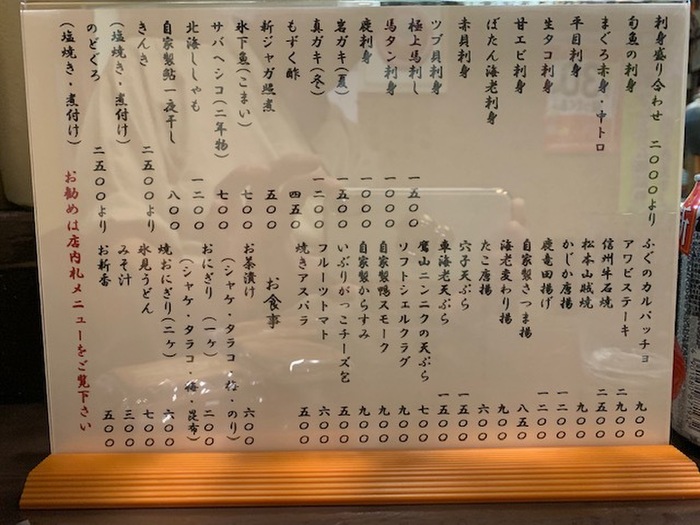 刺身盛り合わせ 二〇〇〇より
旬魚の刺身
まぐろ赤身・中トロ
平目刺身
生タコ刺身
甘エビ刺身
ぼたん海老刺身
赤貝刺身
ツブ貝刺身
極上馬刺し 一五〇〇
馬タン刺身 一〇〇〇
鹿刺身 一〇〇〇
岩ガキ(夏) 一五〇〇
真ガキ(冬) 一二〇〇
もずく酢 四五〇
新ジャガ煮 五〇〇
氷下魚(こまい) 七〇〇
サバヘシコ(二年物) 七〇〇
北海ししゃも 一二〇〇
自家製鮎一夜干し 八〇〇
きんき 二五〇〇より
(塩焼き・煮付け)
のどぐろ 二五〇〇より
(塩焼き・煮付け)
ふぐのカルパッチョ 九〇〇
アワビステーキ 二九〇〇
信州牛石焼 二五〇〇
松本山賊焼 九〇〇
かじか唐揚 一二〇〇
鹿竜田揚げ 一二〇〇
自家製さつま揚 八五〇
海老変わり揚 九〇〇
たこ唐揚 六〇〇
穴子天ぷら 一五〇〇
車海老天ぷら 一五〇〇
鷹山ニンニクの天ぷら 七〇〇
ソフトシェルクラブ 九〇〇
自家製鴨スモーク 九〇〇
自家製からすみ 九〇〇
いぶりがっこチーズ包 五〇〇
フルーツトマト 六〇〇
焼きアスパラ 五〇〇
お食事
お茶漬け 六〇〇
(シャケ・タラコ・梅・のり)
おにぎり(一ケ) 二〇〇
(シャケ・タラコ・梅・昆布)
焼おにぎり(二ケ) 六〇〇
氷見うどん 七〇〇
みそ汁 三〇〇
お新香 五〇〇
お勧めは店内札メニューをご覧下さい